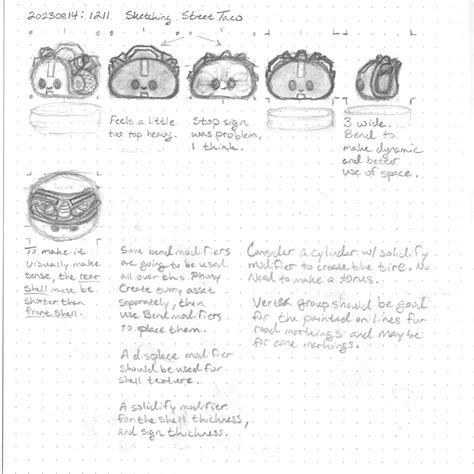 20230814: 1211 Sketching Street Taco
Feels a little
too top heavy.
Stop sign
was problem,
I think.
3 wide.
Bend to
make dynamic
and better
use of space.
To make it
visually make
sense, the rear
shell must be
shorter than
front shell.
Some bend modifiers
are going to be used
all over this.
Create every asset
separately, then
use Bend modifiers
to place them.
A displace modifier
should be used for
shell texture.
A solidify modifier
for the shell thickness,
and sign thickness.
Consider a cylinder w/ solidify
modifier to create the tire. No
need to make a torus.
Vertex group should be good
for the painted on lines for
road markings and maybe
for cone markings.